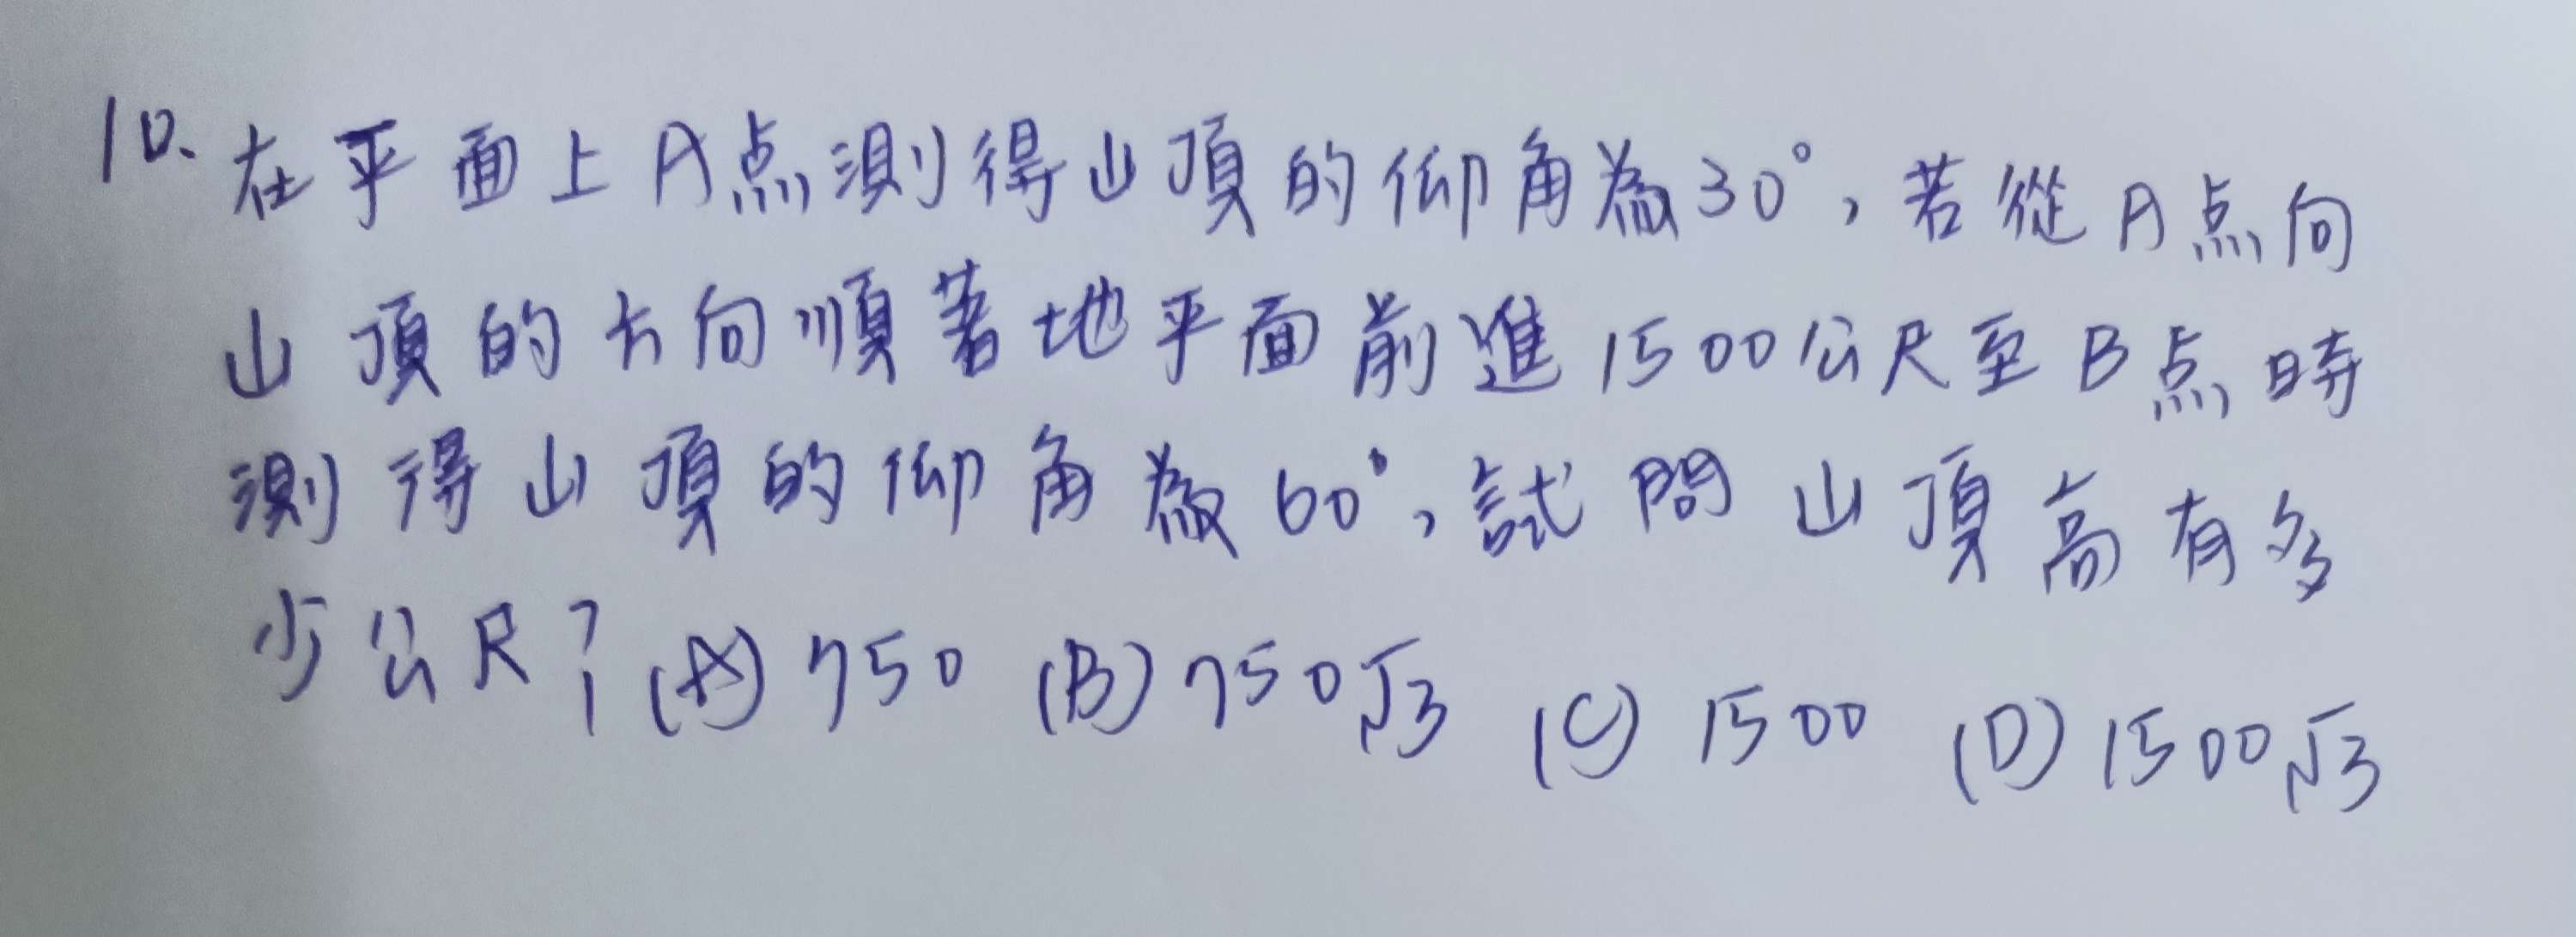 10. 在平面上A点測得山頂的仰角為30°，若從A点向
山頂的方向順著地平面前進1500公尺至B点時
測得山頂的仰角為60°，試問山頂高有多
少公尺？(A) 750 (B) 750√3 (C) 1500 (D) 1500√3